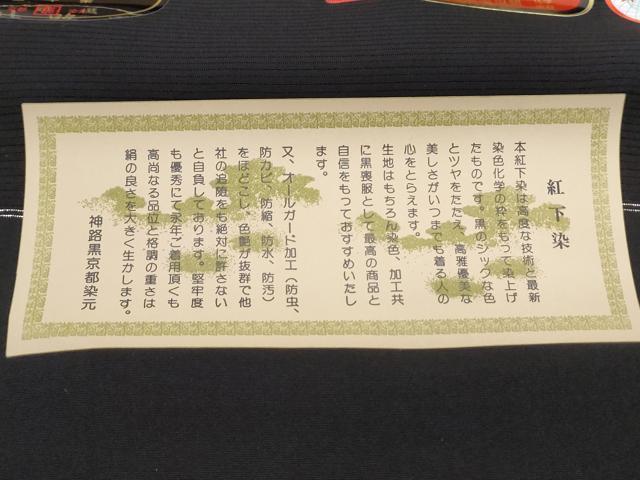 紅下染
本紅下染は高度な技術と最新
染色化学の粋をもって染上げ
たものです。黒のシックな色
とツヤをたたえ、高雅優美な
美しさがいつまでも着る人の
心をとらえます。
生地はもちろん染色、加工共
に黒喪服として最高の商品と
自信をもっておすすめいたし
ます。
又、オールガード加工（防虫、
防カビ、防縮、防水、防汚）
をほどこし、色艶が抜群で他
社の追随をも絶対に許さない
と自負しております。堅牢度
も優秀にて永年ご着用頂くも
高尚なる品位と格調の重さは
絹の良さを大きく生かします。
神路黒京都染元